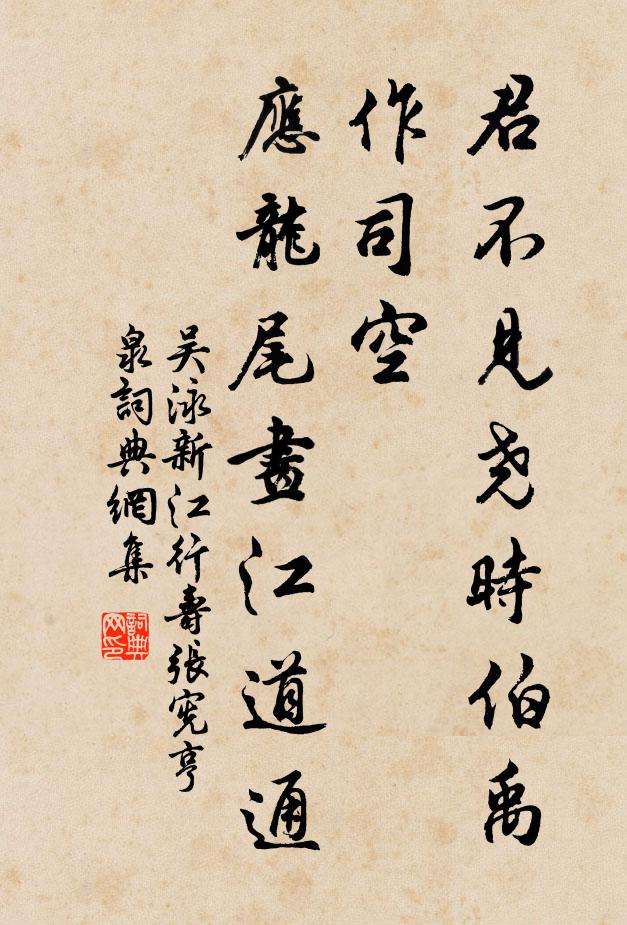 君不見尧時伯禹
作司空
應龍尾畫江道通
吴泳新江行壽張宪亨
泉詞典網集
詞典网印